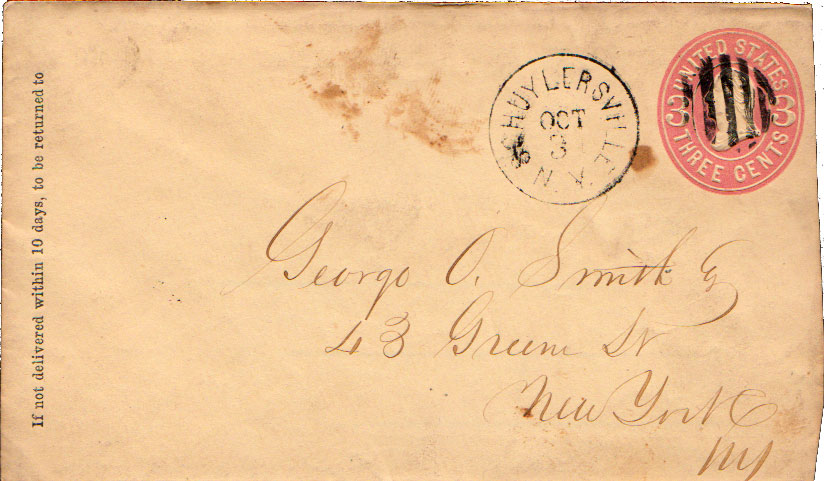 If not delivered within 10 days, to be returned to
SCHUYLERSVILLE N.Y.
OCT
3
UNITED STATES
3 3
THREE CENTS
George O. Smith Esq
43 Greene St
New York
NY